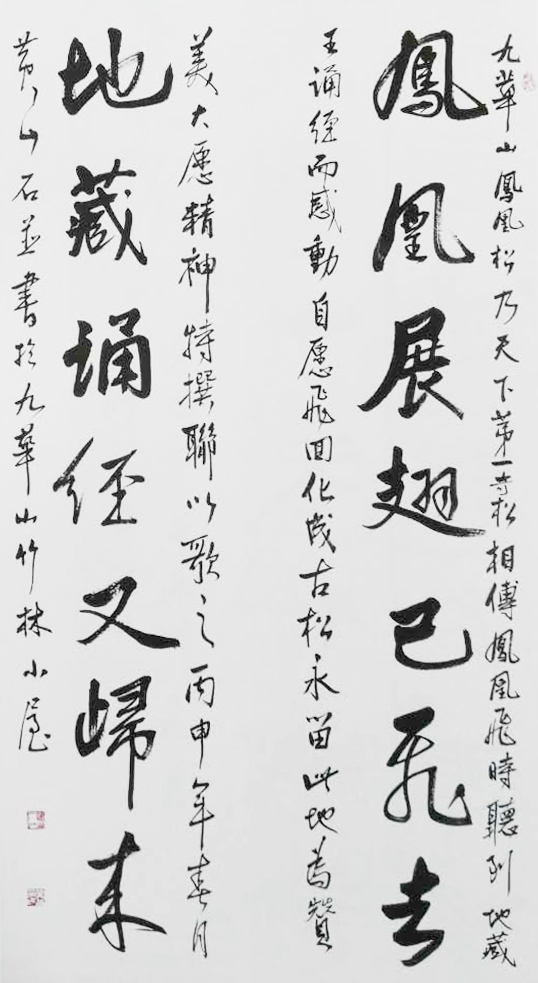 九華山鳳凰松乃天下第一奇松相傳鳳凰飛時聽到地藏
鳳凰展翅已飛去
王誦經而感動自愿飛回化成古松永留此地為贊
美大愿精神特撰聯以歌之丙申年春月
地藏誦經又歸来
黄山石並書於九華山竹林小屋